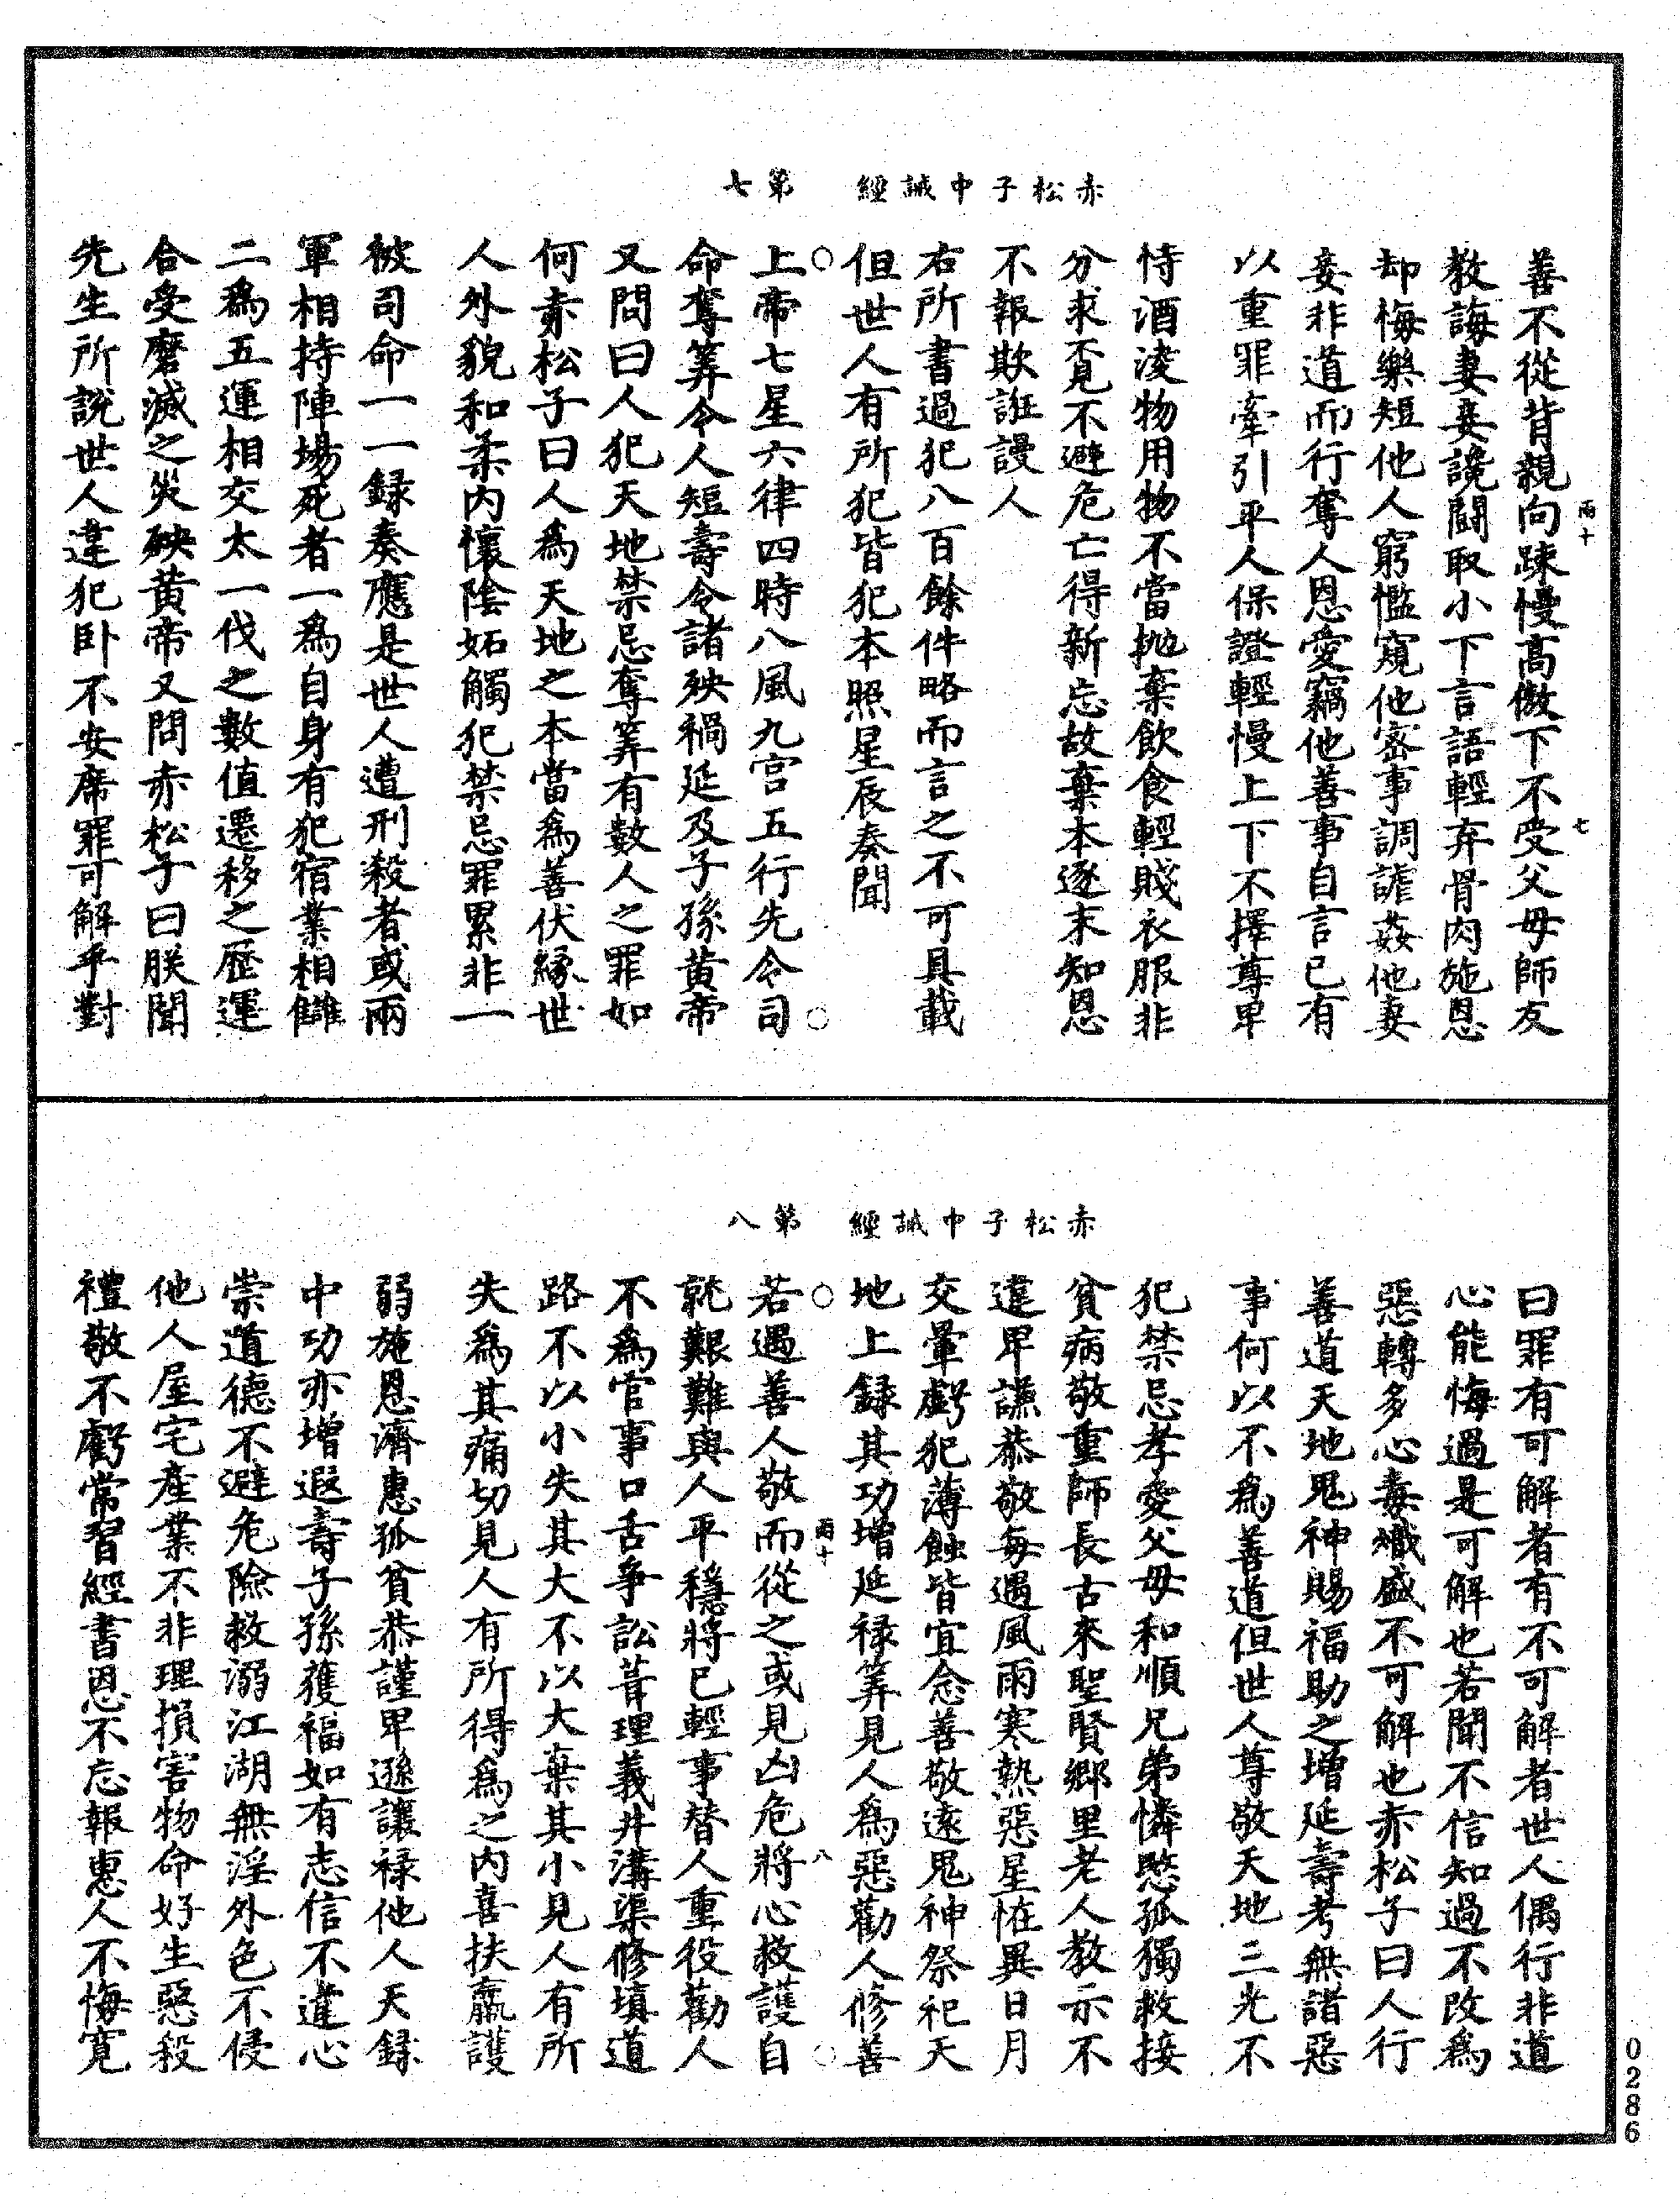 赤松子中誡經　第七
善不從背親向踈慢高傲下不受父母師友
教誨妻妾讒鬪取小下言語輕弃骨肉施恩
却悔樂短他人窮檻窺他密事調謔姦他妻
妾非道而行奪人恩愛竊他善事自言已有
以重罪牽引平人保證輕慢上下不擇尊卑
恃酒凌物用物不當抛棄飲食輕賤衣服非
分求覓不避危亡得新忘故棄本逐末知恩
不報欺誑謾人
右所書過犯八百餘件略而言之不可具載
但世人有所犯皆犯本照星辰奏聞
上帝七星六律四時八風九宫五行先令司
命奪筭令人短壽令諸殃禍延及子孫黄帝
又問曰人犯天地禁忌奪筭有數人之罪如
何赤松子曰人爲天地之本當爲善伏縁世
人外貌和柔内懷陰妬觸犯禁忌罪累非一
被司命一一録奏應是世人遭刑殺者或兩
軍相持陣塲死者一爲自身有犯宿業相讎
二爲五運相交太一伐之數值遷移之歴運
合受磨滅之災殃黄帝又問赤松子曰朕聞
先生所説世人違犯卧不安席罪可解乎對
雨十
七
赤松子中誡經　第八
曰罪有可解者有不可解者世人偶行非道
心能悔過是可解也若聞不信知過不改爲
惡轉多心毒熾盛不可解也赤松子曰人行
善道天地鬼神賜福助之增延壽考無諸惡
事何以不爲善道但世人尊敬天地三光不
犯禁忌孝愛父母和順兄弟憐愍孤獨救接
貧病敬重師長古來聖賢鄉里老人教示不
違卑謙恭敬每遇風雨寒熱惡星恠異日月
交暈虧犯薄蝕皆宜念善敬遠鬼神祭祀天
地上録其功增延禄筭見人爲惡勸人修善
若遇善人敬而從之或見凶危將心救護自
就艱難與人平穩將已輕事替人重役勸人
不爲官事口舌争訟葺理義井溝渠修填道
路不以小失其大不以大棄其小見人有所
失爲其痛切見人有所得爲之内喜扶羸護
弱施恩濟惠孤貧恭謹卑遜讓禄他人天録
中功亦增遐壽子孫獲福如有志信不違心
崇道德不避危險救溺江湖無淫外色不侵
他人屋宅産業不非理損害物命好生惡殺
禮敬不虧常習經書恩不忘報惠人不悔寛
雨十
八
0286